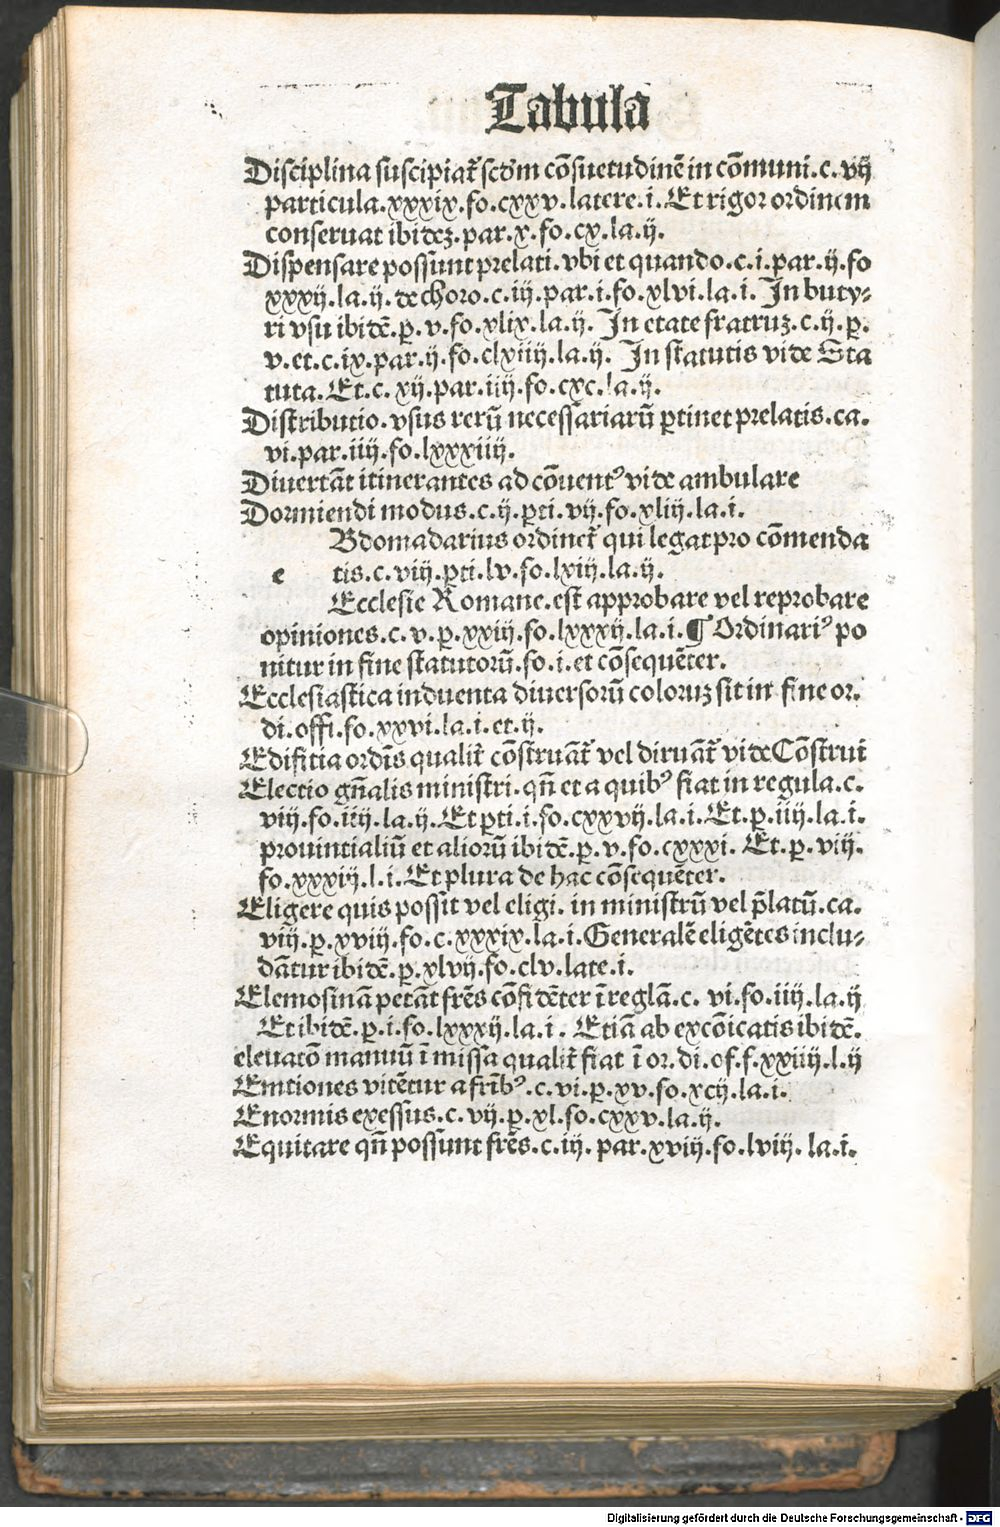 Tabula
Disciplina suscipiat᷑ scd̃m cõsuetudinẽ in cõmuni.c.vij
particula.xxxix.fo.cxxv.latere.i.Et rigor ordinem
conseruat ibidez.par.x.fo.cx.la.ij.
Dispensare possunt prelati.vbi et quando.c.i.par.ij.fo
xxxij.la.ij.de choro.c.iij.par.i.fo.xlvi.la.i. In buty⸗
ri vsu ibidẽ.p̱.v.fo.xlix.la.ij. In etate fratruz.c.ij.p̱.
v.et.c.ix.par.ij.fo.clxiiij.la.ij. In statutis vide Sta
tuta.Et.c.xij.par.iiij.fo.cxc.la.ij.
Distributio.vsus rerũ necessariarũ ꝑtinet prelatis.ca.
vi.par.iiij.fo.lxxxiiij.
Diuertãt itinerantes ad cõuentꝰ vide ambulare
Dormiendi modus.c.ij.ꝑti.vij.fo.xliij.la.i.
Bdomadarius ordinet᷑ qui legat pro cõmenda
e tis.c.viij.ꝑti.lv.fo.lxiij.la.ij.
Ecclesie Romane.est approbare vel reprobare
opiniones.c.v.p̱.xxiij.fo.lxxxij.la.i.¶ Ordinariꝰ po
nitur in fine statutorũ.fo.i.et cõsequẽter.
Ecclesiastica induenta diuersorũ coloruz sit in fine or.
di.offi.fo.xxvi.la.i.et.ij.
Edifitia ordĩs qualit᷑ cõstruãt᷑ vel diruãt᷑ vide Cõstrui
Electio gñalis ministri.qñ et a quibꝰ fiat in regula.c.
viij.fo.iiij.la.ij.Et ꝑti.i.fo.cxxvij.la.i.Et.p̱.iiij.la.i.
prouintialiũ et aliorũ ibidẽ.p̱.v.fo.cxxxi. Et.p̱.viij.
fo.xxxiij.l.i.Et plura de hac cõsequẽter.
Eligere quis possit vel eligi.in ministrũ vel p̃latũ.ca.
viij.p̱.xviij.fo.c.xxxix.la.i.Generalẽ eligẽtes inclu⸗
dãtur ibidẽ.p̱.xlvij.fo.clv.late.i.
Elemosinã petãt fr̃es cõfidẽter ĩ reglã.c. vi.fo.iiij.la.ij
Et ibidẽ.p̱.i.fo.lxxxij.la.i. Etiã ab excõicatis ibidẽ.
eleuatõ manuũ ĩ missa qualit᷑ fiat ĩ or.di.of.f.xxiiij.l.ij
Emtiones vitẽtur a fr̃ibꝰ.c.vi.p̱.xv.fo.xcij.la.i.
Enormis exessus.c.vij.p̱.xl.fo.cxxv.la.ij.
Equitare qñ possunt fr̃es.c.iij. par.xviij.fo.lviij. la.i.
Digitalisierung gefördert durch die Deutsche Forschungsgemeinschaft - DFG